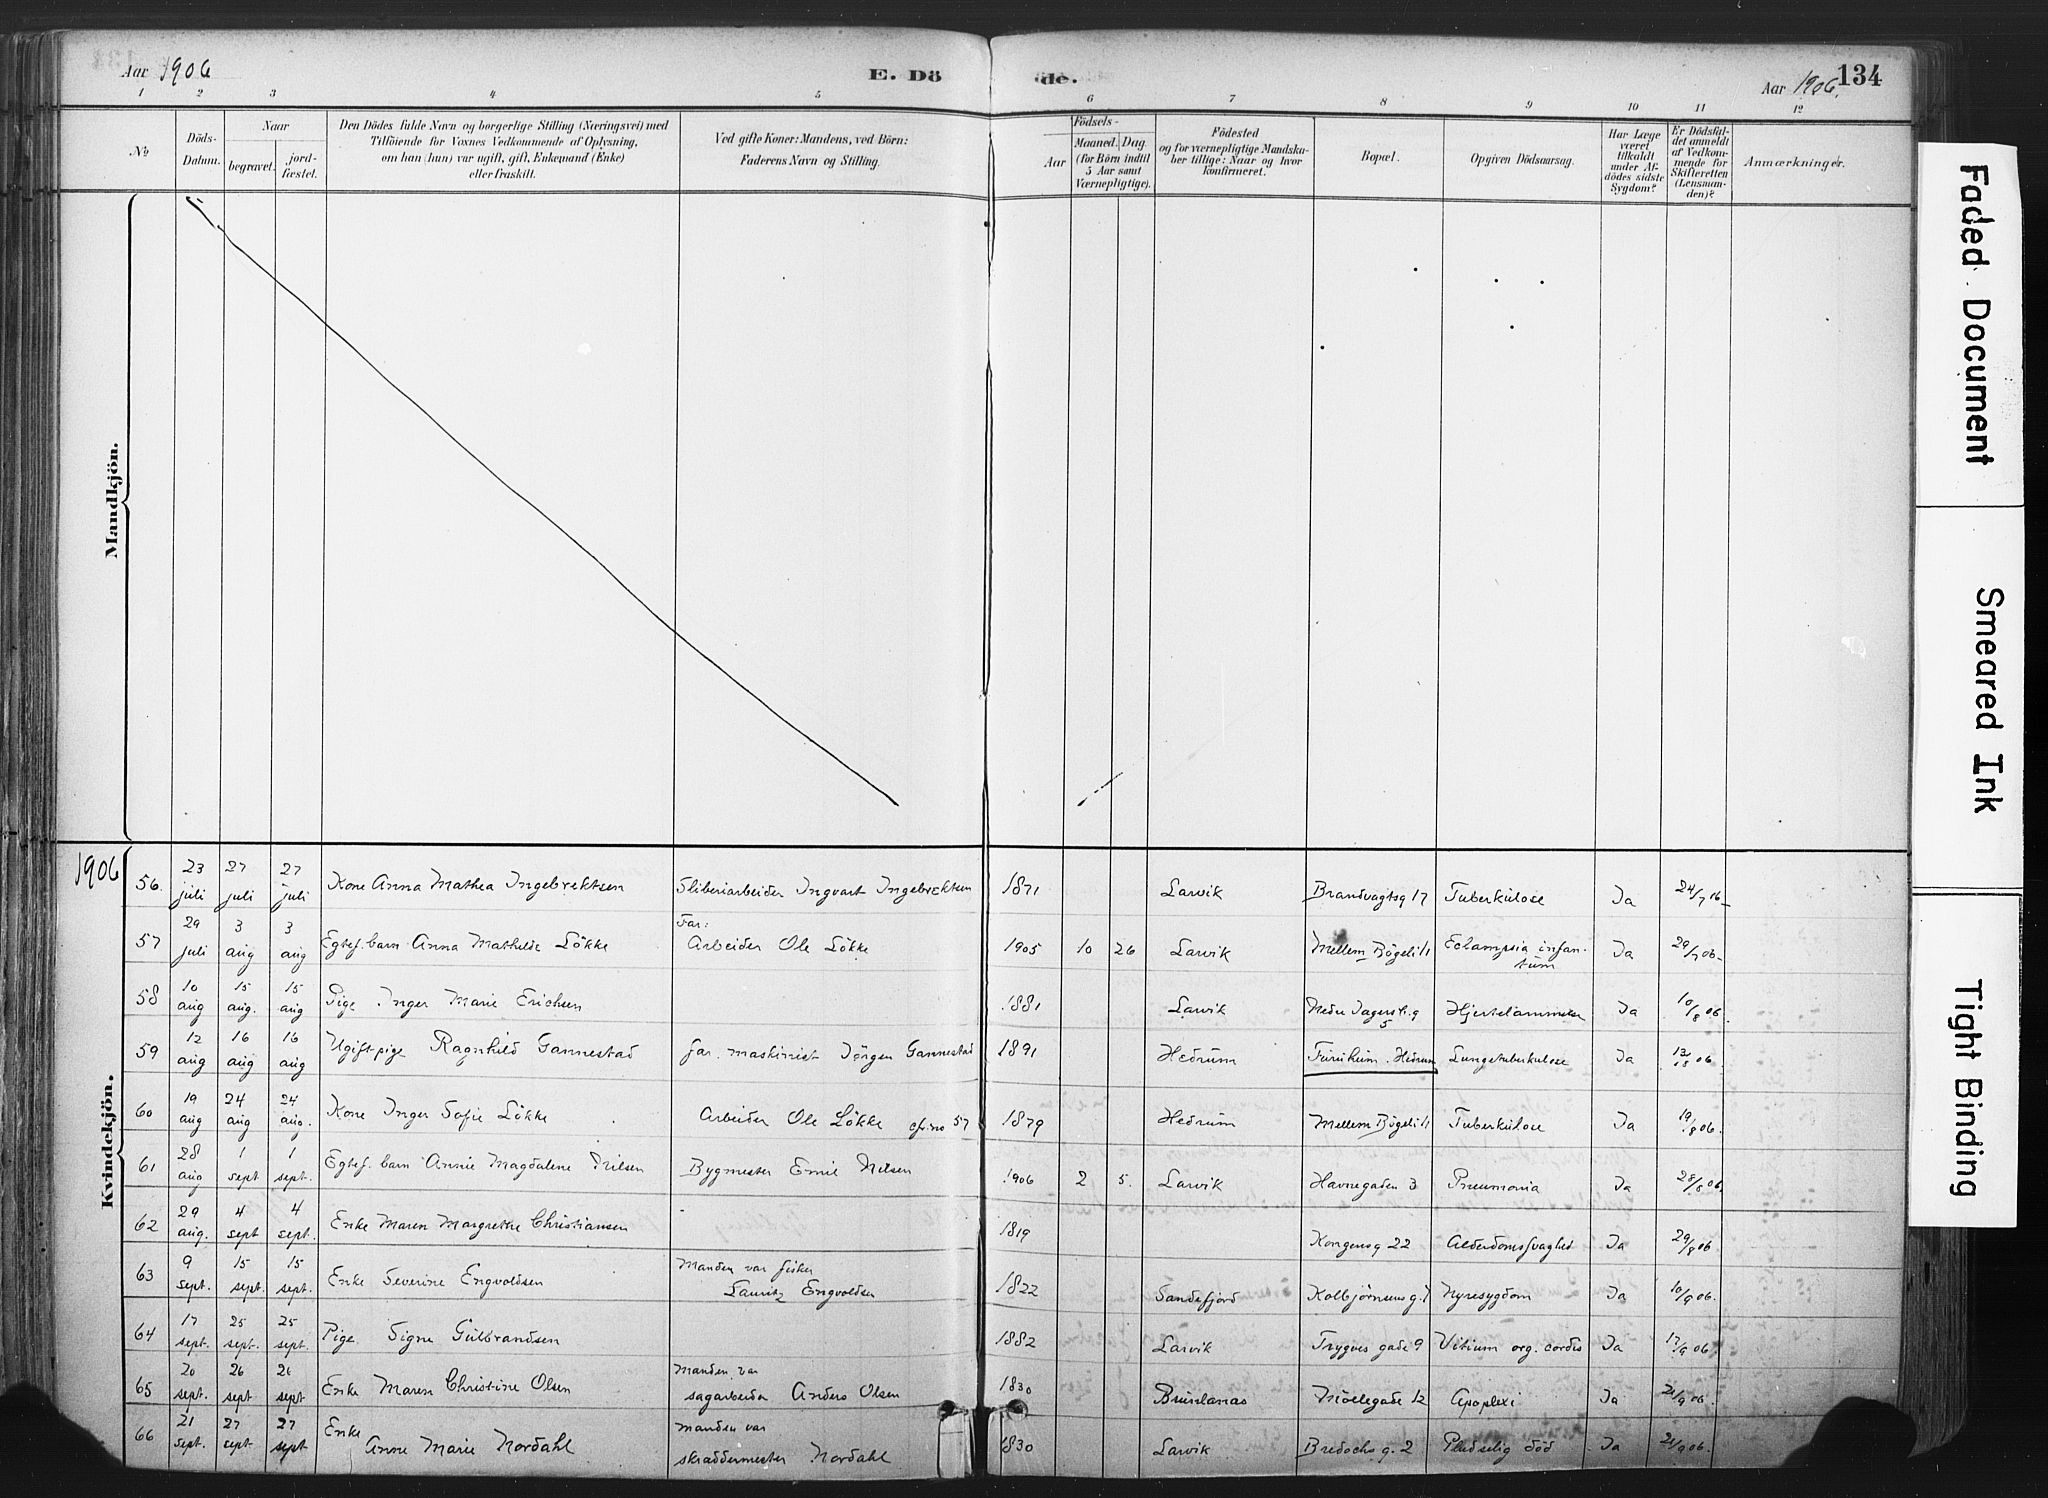 Aar 1906
E. Dö
de.
Aar 1906.
134
1 2 3 4 5 6 7 8 9 10 11 12
No
Döds-
Datum.
Naar
begravet.
jord-
fæstet.
Den Dödes fulde Navn og borgerlige Stilling (Næringsvei) med
Tilföiende for Voxnes Vedkommende af Oplysning,
om han (hun) var ugift, gift, Enkemand (Enke)
eller fraskilt.
Ved gifte Koner: Mandens, ved Börn:
Faderens Navn og Stilling.
Aar
Födsels-
Maaned. Dag.
(for Börn indtil
5 Aar samt
Værnepligtige).
Födested
og for værnepligtige Mandska-
ber tillige: Naar og hvor
konfirmeret.
Bopæl.
Opgiven Dödsaarsag.
Har Læge
været
tilkaldt
under Af-
dödes sidste
Sygdom?
Er Dödsfal-
det anmeldt
af Vedkom-
mende for
Skifteretten
(Lensman-
den)?
Anmærkninger.
Mandkjön.
Kvindekjön.
1906
56. 23 juli 27 juli 27 juli Kone Anna Mathea Ingebrektsen Sliberiarbeider Ingvart Ingebrektsen 1871 Larvik Brandvagtsg 17 Tuberkulose Ja 24/7 06
57 29 juli 3 aug 3 aug Egtef. barn Anna Mathilde Løkke Far: Arbeider Ole Løkke 1905 10 26 Larvik Mellem Bøgeli 11 Eclampsia infan-
tum Ja 29/7 06
58 10 aug 15 aug. 15 aug Pige Inger Marie Erichsen 1881 Larvik Nedre 5 Ja 10/8 06.
59 12 aug 16 aug 16 aug Ugift pige Ragnhild Gannestad far. maskinist Jørgen Gannestad 1891 Hedrum Furuheim. Hedrum Lungetuberkulose Ja 13/8 06.
60 19 aug 24 aug 24 aug. Kone Inger Sofie Løkke Arbeider Ole Løkke cfr. no 57 1879 Hedrum Mellem Bøgeli 11 Tuberkulose Ja 19/8 06.
61 28 aug 1 sept 1 sept. Egtef. barn Annie Magdalene Nilsen Bygmester Emil Nilsen 1906 2 5. Larvik Havnegaden 3 Pneumonia Ja 28/8 06.
62 29 aug. 4 sept 4 sept. Enke Maren Margrethe Christiansen 1819 Kongensg 22 Alderdomssvaghed Ja 29/8 06
63 9 sept. 15 sept. 15 sept. Enke Severine Engvoldsen Manden var fisker
Lauritz Engvoldsen 1822 Sandefjord Kolbjørnsensg. 7 Nyresygdom Ja 10/9 06.
64 17 sept. 25 sept. 25 sept. Pige Signe Gulbrandsen 1882 Larvik Trygves gade 9 Vitium org. cordis Ja 17/9 06.
65 20 sept. 26 sept 26 sept Enke Maren Christine Olsen Manden var
sagarbeider Anders Olsen 1830 Brunlanæs Møllegade 12 Apoplexi Ja 21/9 06.
66 21 sept. 27 sept 27 sept Enke
Anne Marie Nordahl manden var
skræddermester Nordahl 1830 Larvik Bredochsg. 2 Pludselig død Ja 21/9 06.
Faded Document
Smeared Ink
Tight Binding